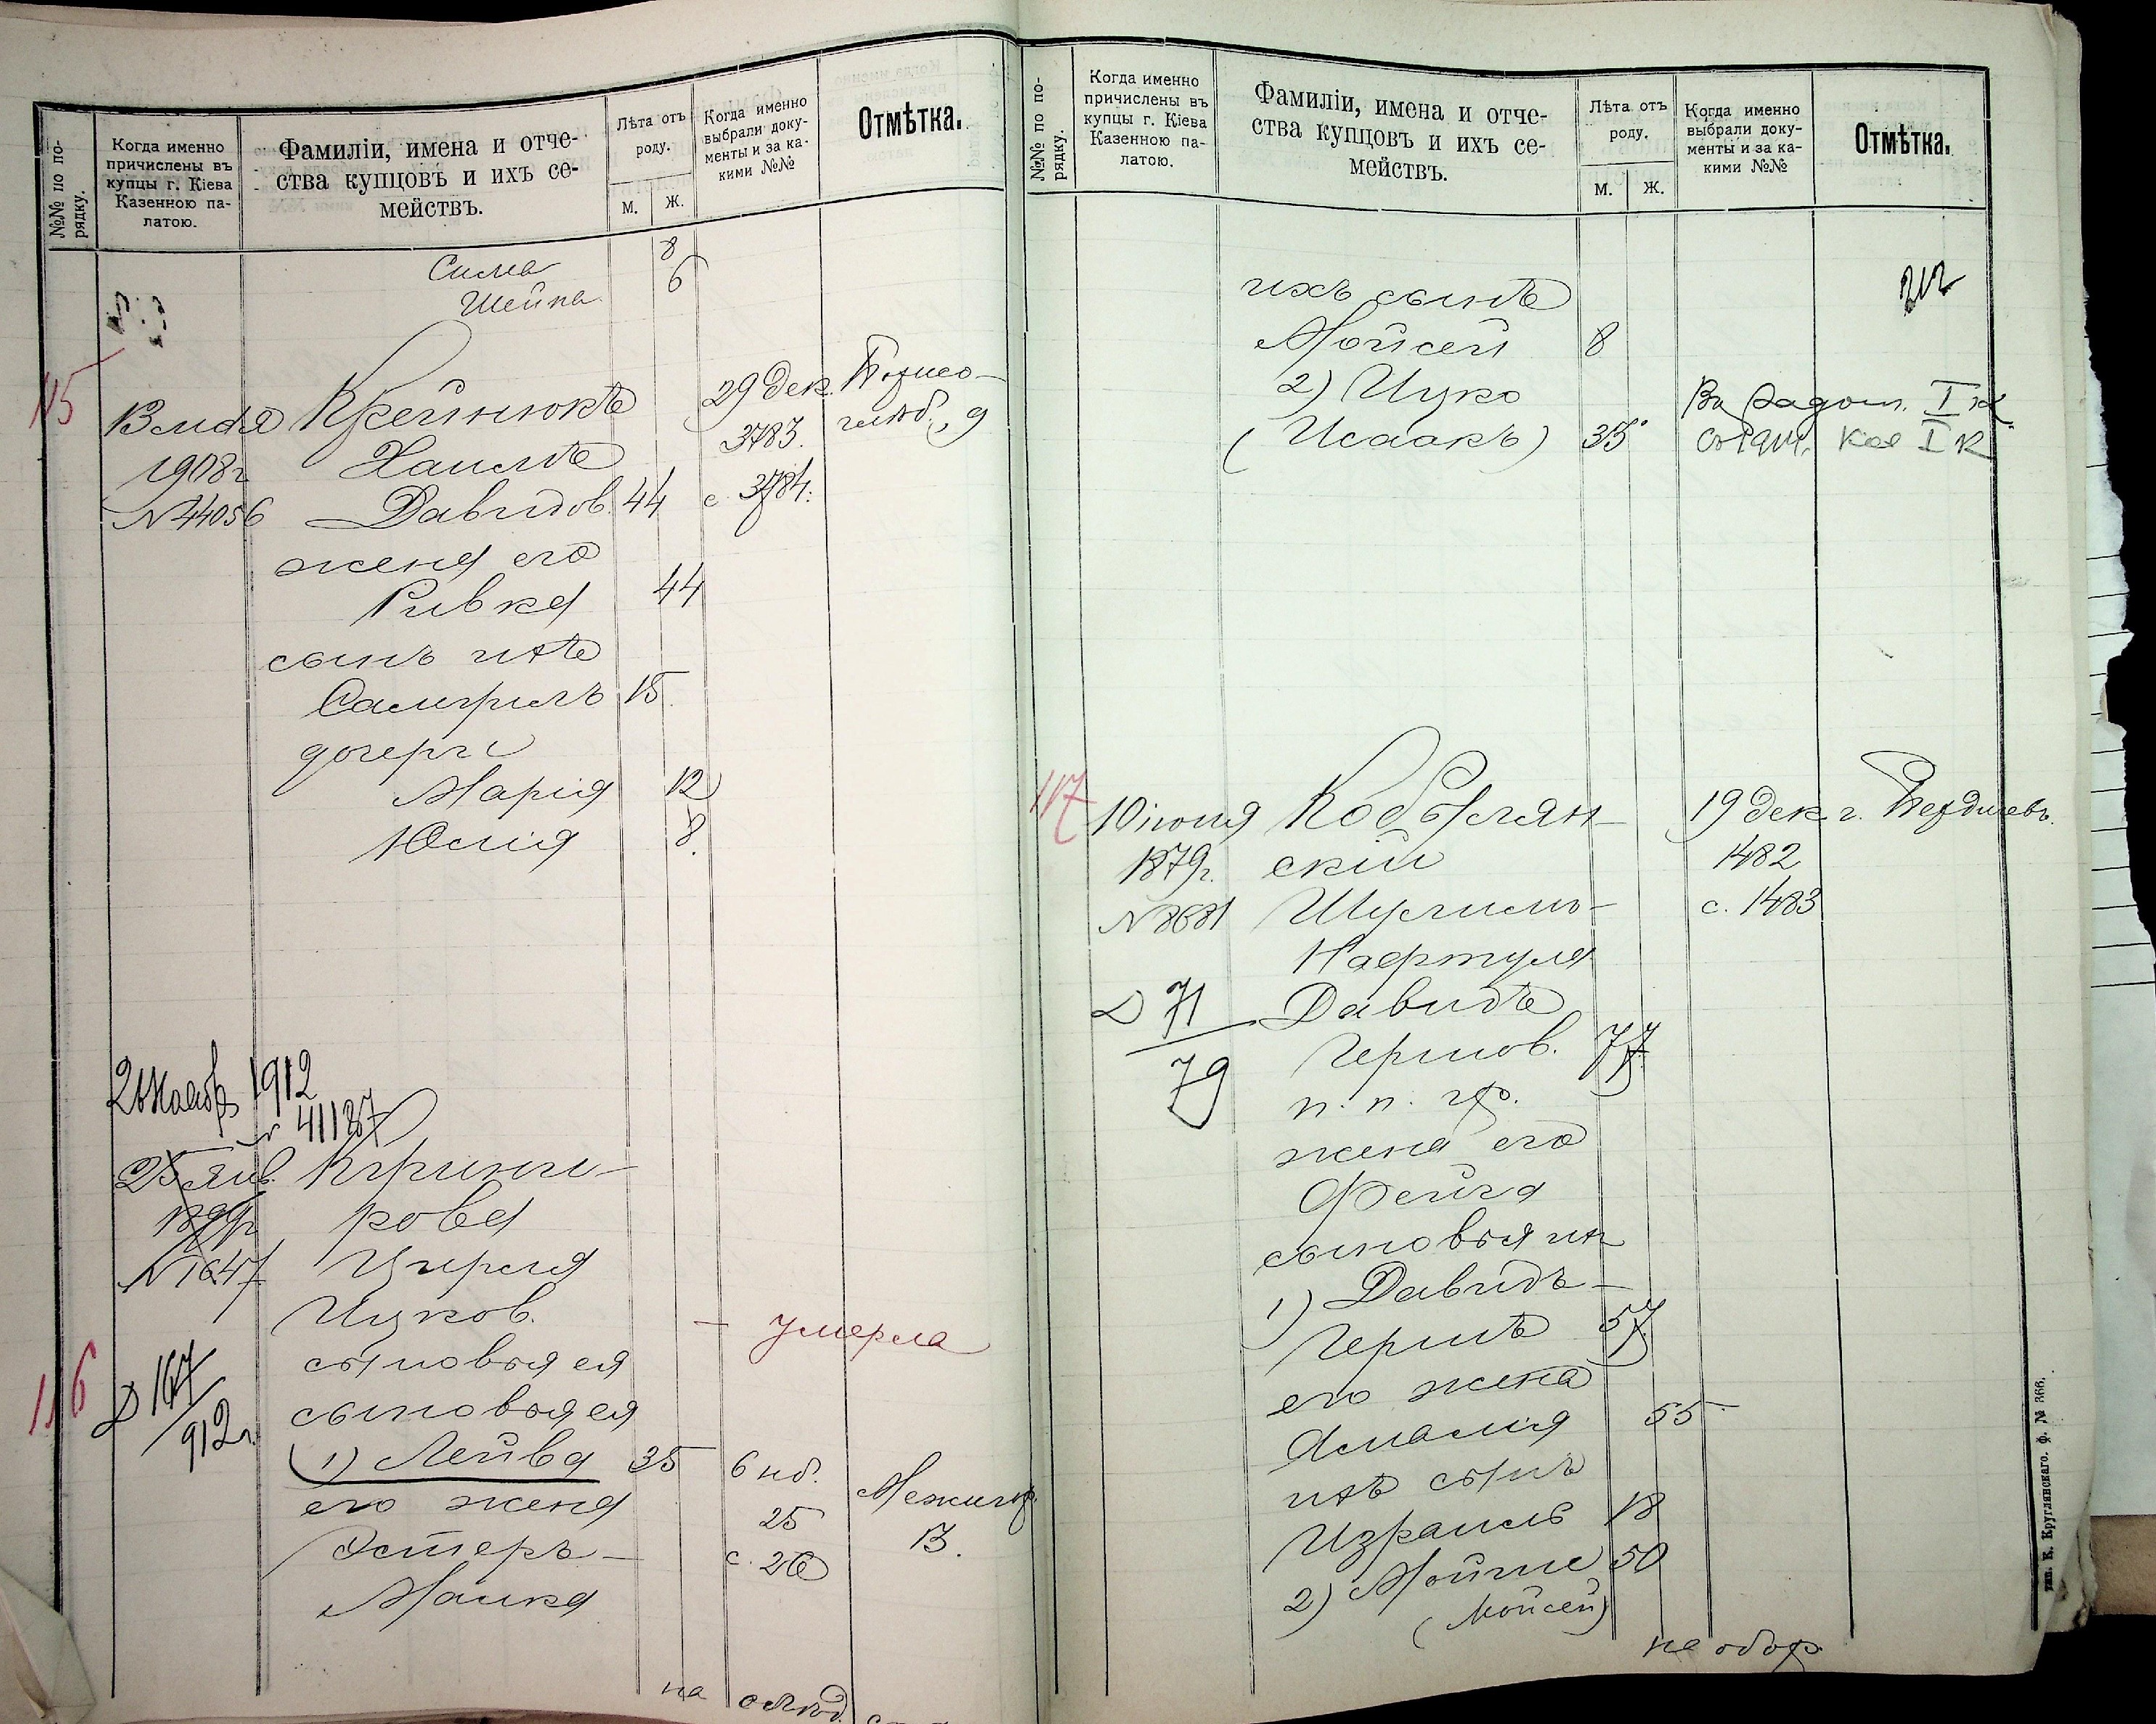 №№ по по-
рядку.
Когда именно
причислены въ
купцы г. Кіева
Казенною па-
латою.
Фамиліи, имена и отче-
ства купцовъ и ихъ се-
мействъ.
Лѣта отъ
роду.
М. Ж.
Когда именно
выбрали доку-
менты и за ка-
кими №№
Отмѣтка.
Сима 8
Шейна 6
115
13 мая Крейнюкъ 29 дек.
1908 г. Хаимъ 3783.
№ 44056 Давидов. 44 с. 3784.
жена его
Ривка 44
сынъ ихъ
Самуилъ 15.
дочери
Марія 12
Юлія 8.
1912
№ 41187
25 янв. Куршни-
1899г. рова
№ 1647 Цирля
Ицков.
умерла
сыновья ея
116
Д 167
912 г.
сыновья ея
1) Лейба 35 6 нб.
его жена 25 Межигор.
Эстеръ- с. 26 13.
Малка
на
№№ по по-
рядку.
Когда именно
причислены въ
купцы г. Кіева
Казенною па-
латою.
Фамиліи, имена и отче-
ства купцовъ и ихъ се-
мействъ.
Лѣта отъ
роду.
М. Ж.
Когда именно
выбрали доку-
менты и за ка-
кими №№
Отмѣтка.
212
ихъ сынъ
Мойсей 8
2) Ицко
(Исаакъ) 35
117
10 іюня Кобылян- 19 дек. г. Бердичевъ.
1879г. скій 1482
№ 8681 Шулимъ- с. 1483
Нафтула
Д 71 Давидъ
79 Гершов. 77
п. п. гр.
жена его
Фейга
сыновья их
1) Давидъ-
Гершъ 57
его жена
Амалія 55
ихъ сынъ
Израиль 18
2) Мойше 50
(Мойсей)
на обор.
тип. К. Круглянскаго. Ф. № 366.